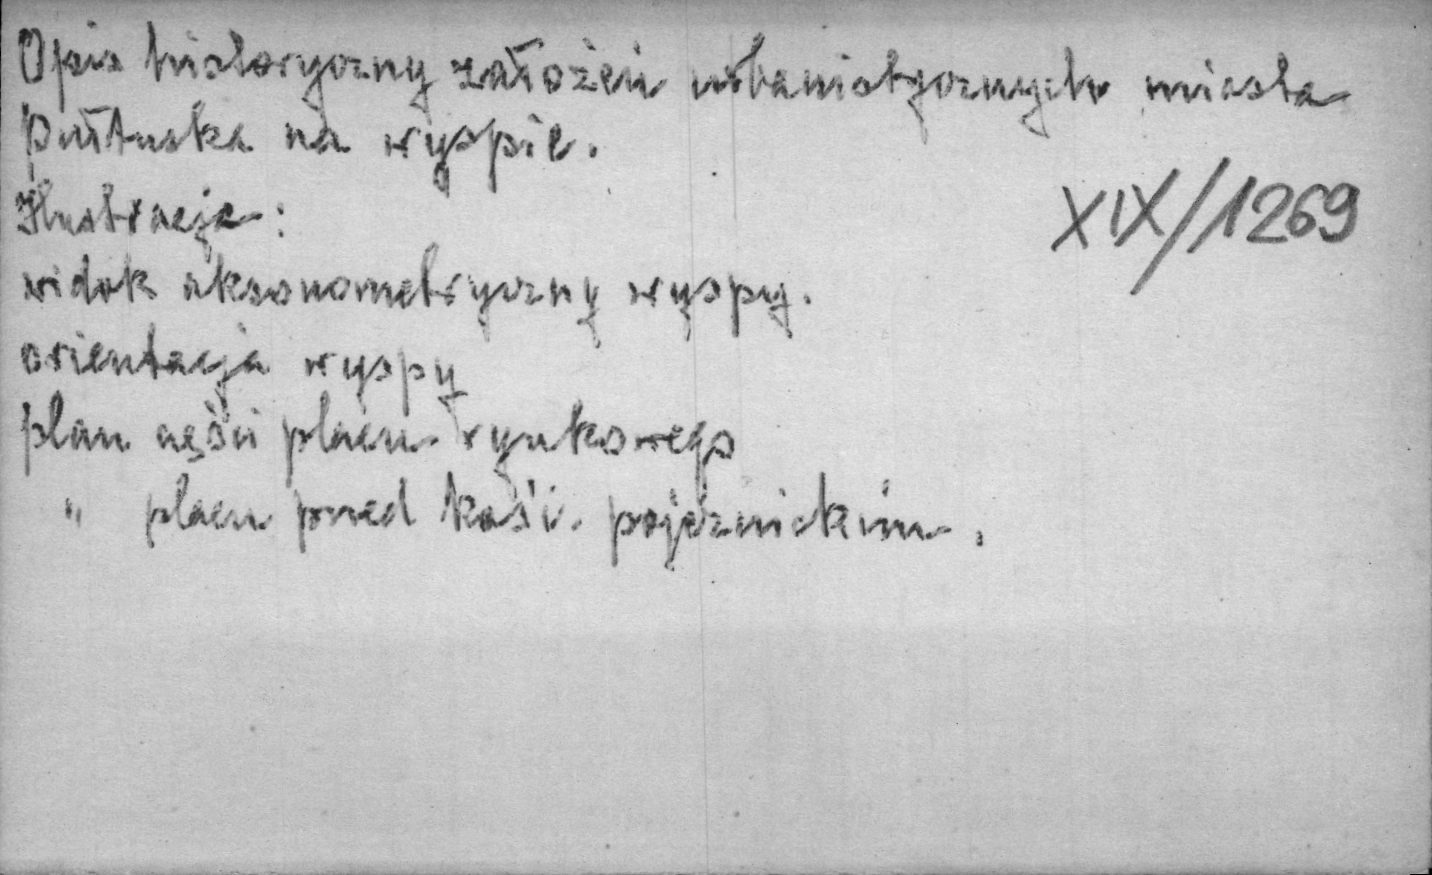 Opis historyczny założeń urbanistycznych miasta
Pułtuska na wyspie.
Ilustracje:
XIX/1269
widok aksonometryczny wyspy.
orientacja wyspy
plan części placu rynkowego
" placu przed kośc. pojezuickim.